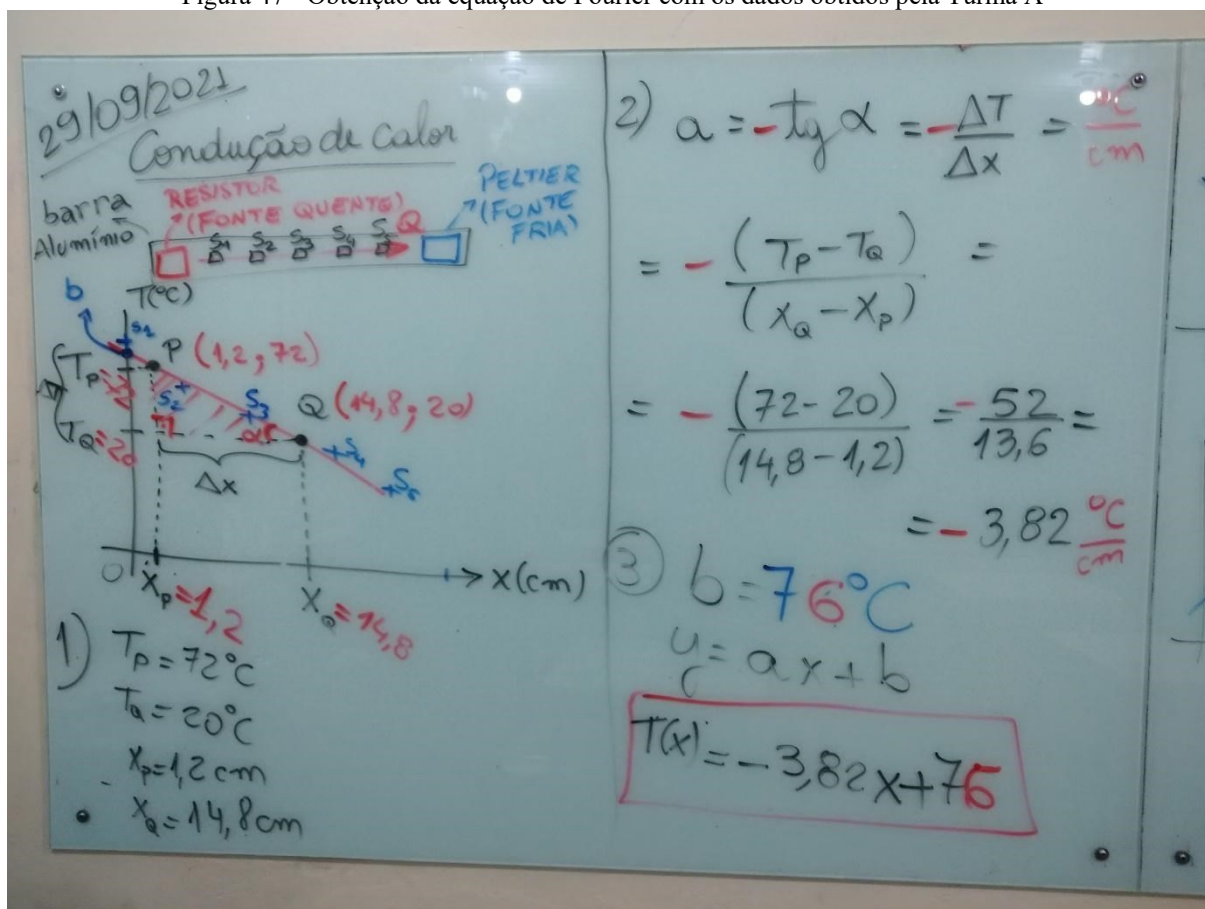 Figura 47 - Obtenção da equação de Fourier com os dados obtidos pela Turma A
29/09/2021
Condução de calor
barra
Alumínio
RESISTOR
(FONTE QUENTE)
PELTIER
(FONTE
FRIA)
S1 S2 S3 S4 S5 Q
b
T(°C)
S1
P (1,2 ; 72)
T_P=72
S2
S3
Q (14,8 ; 20)
α
T_Q=20
S4
S5
Δx
0
X_P=1,2
X_Q=14,8
x(cm)
1) T_P = 72°C
T_Q = 20°C
x_P=1,2 cm
x_Q=14,8cm
2) a = -tg α = -ΔT/Δx = °C/cm
= - (T_P - T_Q)/(X_Q - X_P) =
= - (72-20)/(14,8-1,2) = -52/13,6 =
= -3,82 °C/cm
3 b=76°C
y = ax+b
T(x) = -3,82x+76